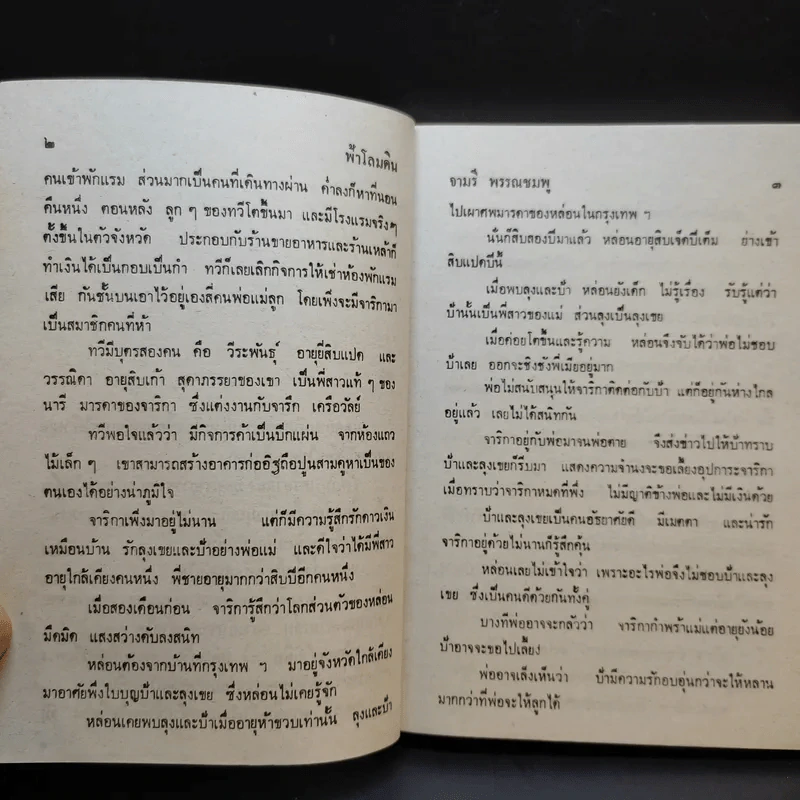 ๒
ฟ้าโลมดิน
คนเข้าพักแรม ส่วนมากเป็นคนที่เดินทางผ่าน ค่ำลงก็หาที่นอน
คืนหนึ่ง ตอนหลัง ลูก ๆ ของทวีโตขึ้นมา และมีโรงแรมจริงๆ
ตั้งขึ้นในตัวจังหวัด ประกอบกับร้านขายอาหารและร้านเหล้าก็
ทำเงินได้เป็นกอบเป็นกำ ทวีก็เลยเลิกกิจการให้เช่าห้องพักแรม
เสีย กันชั้นบนเอาไว้อยู่เองสี่คนพ่อแม่ลูก โดยเพิ่งจะมีจาริกามา
เป็นสมาชิกคนที่ห้า
ทวีมีบุตรสองคน คือ วีระพันธุ์ อายุยี่สิบแปด และ
วรรณิดา อายุสิบเก้า สุดาภรรยาของเขา เป็นพี่สาวแท้ ๆ ของ
นารี มารดาของจาริกา ซึ่งแต่งงานกับจารึก เครือวัลย์
ทวีพอใจแล้วว่า มีกิจการค้าเป็นปึกแผ่น จากห้องแถว
ไม้เล็ก ๆ เขาสามารถสร้างอาคารก่ออิฐถือปูนสามคูหาเป็นของ
ตนเองได้อย่างน่าภูมิใจ
จาริกาเพิ่งมาอยู่ไม่นาน แต่ก็มีความรู้สึกรักดาวเงิน
เหมือนบ้าน รักลุงเขยและป้าอย่างพ่อแม่ และดีใจว่าได้มีพี่สาว
อายุใกล้เคียงคนหนึ่ง พี่ชายอายุมากกว่าสิบปีอีกคนหนึ่ง
เมื่อสองเดือนก่อน จาริการู้สึกว่าโลกส่วนตัวของหล่อน
มืดมิด แสงสว่างดับลงสนิท
หล่อนต้องจากบ้านที่กรุงเทพ ฯ มาอยู่จังหวัดใกล้เคียง
มาอาศัยพึ่งใบบุญป้าและลุงเขย ซึ่งหล่อนไม่เคยรู้จัก
หล่อนเคยพบลุงและป้าเมื่ออายุห้าขวบเท่านั้น ลุงและป้า
จามรี พรรณชมพู
๓
ไปเผาศพมารดาของหล่อนในกรุงเทพ ฯ
นั่นก็สิบสองปีมาแล้ว หล่อนอายุสิบเจ็ดปีเต็ม ย่างเข้า
สิบแปดปีนี้
เมื่อพบลุงและป้า หล่อนยังเด็ก ไม่รู้เรื่อง รับรู้แต่ว่า
ป้านั้นเป็นพี่สาวของแม่ ส่วนลุงเป็นลุงเขย
เมื่อค่อยโตขึ้นและรู้ความ หล่อนจึงจับได้ว่าพ่อไม่ชอบ
ป้าเลย ออกจะชิงชังพี่เมียอยู่มาก
พ่อไม่สนับสนุนให้จาริกาติดต่อกับป้า แต่ก็อยู่กันห่างไกล
อยู่แล้ว เลยไม่ได้สนิทกัน
จาริกาอยู่กับพ่อมาจนพ่อตาย จึงส่งข่าวไปให้ป้าทราบ
ป้าและลุงเขยก็รีบมา แสดงความจำนงจะขอเลี้ยงอุปการะจาริกา
เมื่อทราบว่าจาริกาหมดที่พึ่ง ไม่มีญาติข้างพ่อและไม่มีเงินด้วย
ป้าและลุงเขยเป็นคนอัธยาศัยดี มีเมตตา และน่ารัก
จาริกาอยู่ด้วยไม่นานก็รู้สึกคุ้น
หล่อนเลยไม่เข้าใจว่า เพราะอะไรพ่อจึงไม่ชอบป้าและลุง
เขย ซึ่งเป็นคนดีด้วยกันทั้งคู่
บางทีพ่ออาจจะกลัวว่า จาริกากำพร้าแม่แต่อายุยังน้อย
ป้าอาจจะขอไปเลี้ยง
พ่ออาจเล็งเห็นว่า ป้ามีความรักอบอุ่นกว่าจะให้หลาน
มากกว่าที่พ่อจะให้ลูกได้